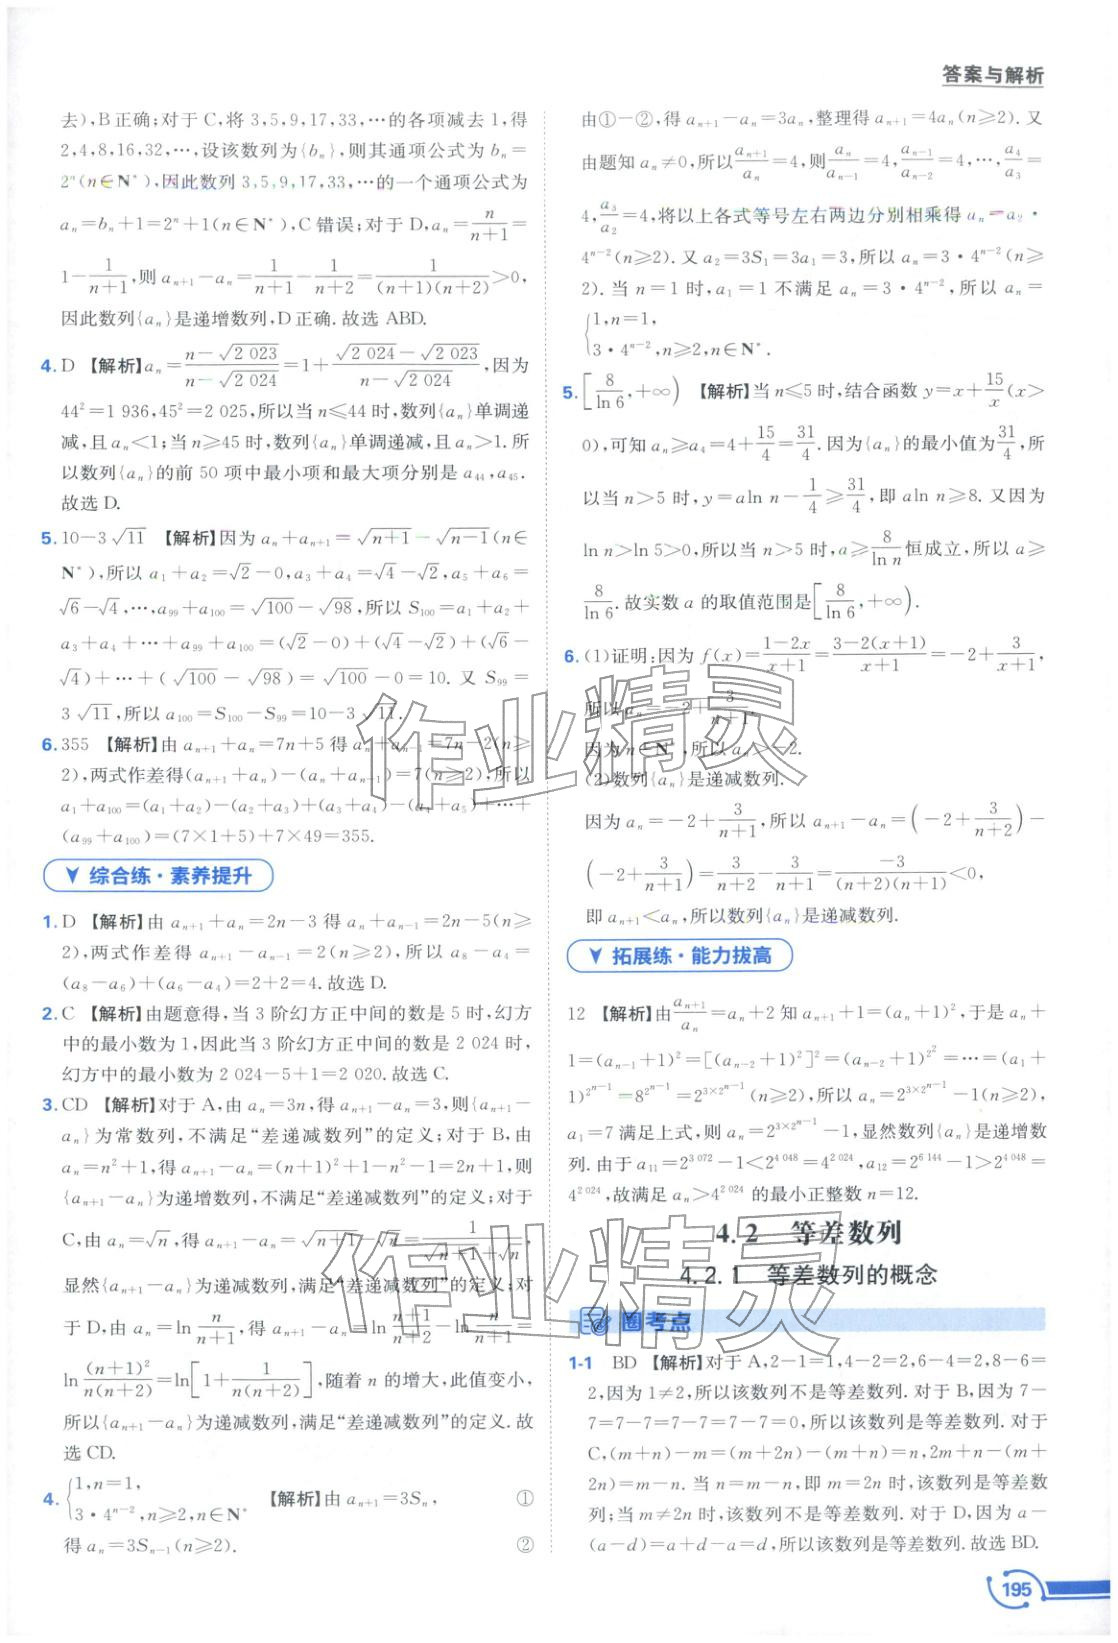 答案与解析
去),B正确;对于C,将3,5,9,17,33,…的各项减去1,得
2,4,8,16,32,…,设该数列为{bₙ},则其通项公式为bₙ=
2ⁿ(n∈N*),因此数列3,5,9,17,33,…的一个通项公式为
aₙ=bₙ+1=2ⁿ+1(n∈N*),C错误;对于D,aₙ=n/(n+1)=
1-1/(n+1),则aₙ₊₁-aₙ=1/(n+1)-1/(n+2)=1/((n+1)(n+2))>0,
因此数列{aₙ}是递增数列,D正确.故选ABD.
4. D 【解析】aₙ=(n-√2 023)/(n-√2 024)=1+(√2 024-√2 023)/(n-√2 024),因为
44²=1 936,45²=2 025,所以当n≤44时,数列{aₙ}单调递
减,且aₙ<1;当n≥45时,数列{aₙ}单调递减,且aₙ>1.所
以数列{aₙ}的前50项中最小项和最大项分别是a₄₄,a₄₅.
故选D.
5. 10-3√11 【解析】因为aₙ+aₙ₊₁=√(n+1)-√(n-1)(n∈
N*),所以a₁+a₂=√2-0,a₃+a₄=√4-√2,a₅+a₆=
√6-√4,…,a₉₉+a₁₀₀=√100-√98,所以S₁₀₀=a₁+a₂+
a₃+a₄+…+a₉₉+a₁₀₀=(√2-0)+(√4-√2)+(√6-
√4)+…+(√100-√98)=√100-0=10.又S₉₉=
3√11,所以a₁₀₀=S₁₀₀-S₉₉=10-3√11.
6. 355 【解析】由aₙ₊₁+aₙ=7n+5得aₙ+aₙ₋₁=7n-2(n≥
2),两式作差得(aₙ₊₁+aₙ)-(aₙ+aₙ₋₁)=7(n≥2),所以
a₁+a₁₀₀=(a₁+a₂)-(a₂+a₃)+(a₃+a₄)-(a₄+a₅)+…+
(a₉₉+a₁₀₀)=(7×1+5)+7×49=355.
综合练·素养提升
1. D 【解析】由aₙ₊₁+aₙ=2n-3得aₙ+aₙ₋₁=2n-5(n≥
2),两式作差得aₙ₊₁-aₙ₋₁=2(n≥2),所以a₈-a₄=
(a₈-a₆)+(a₆-a₄)=2+2=4.故选D.
2. C 【解析】由题意得,当3阶幻方正中间的数是5时,幻方
中的最小数为1,因此当3阶幻方正中间的数是2 024时,
幻方中的最小数为2 024-5+1=2 020.故选C.
3. CD 【解析】对于A,由aₙ=3n,得aₙ₊₁-aₙ=3,则{aₙ₊₁-
aₙ}为常数列,不满足“差递减数列”的定义;对于B,由
aₙ=n²+1,得aₙ₊₁-aₙ=(n+1)²+1-n²-1=2n+1,则
{aₙ₊₁-aₙ}为递增数列,不满足“差递减数列”的定义;对于
C,由aₙ=√n,得aₙ₊₁-aₙ=√(n+1)-√n=1/(√(n+1)+√n),
显然{aₙ₊₁-aₙ}为递减数列,满足“差递减数列”的定义;对
于D,由aₙ=ln n/(n+1),得aₙ₊₁-aₙ=ln (n+1)/(n+2)-ln n/(n+1)=
ln (n+1)²/(n(n+2))=ln[1+1/(n(n+2))],随着n的增大,此值变小,
所以{aₙ₊₁-aₙ}为递减数列,满足“差递减数列”的定义.故
选CD.
4. {1,n=1, 3·4ⁿ⁻²,n≥2,n∈N* 【解析】由aₙ₊₁=3Sₙ, ①
得aₙ=3Sₙ₋₁(n≥2). ②
由①-②,得aₙ₊₁-aₙ=3aₙ,整理得aₙ₊₁=4aₙ(n≥2).又
由题知aₙ≠0,所以aₙ₊₁/aₙ=4,则aₙ/aₙ₋₁=4,aₙ₋₁/aₙ₋₂=4,…,a₄/a₃=
4,a₃/a₂=4,将以上各式等号左右两边分别相乘得aₙ=a₂·
4ⁿ⁻²(n≥2).又a₂=3S₁=3a₁=3,所以aₙ=3·4ⁿ⁻²(n≥
2).当n=1时,a₁=1不满足aₙ=3·4ⁿ⁻²,所以aₙ=
{1,n=1,
3·4ⁿ⁻²,n≥2,n∈N*.
5. [8/ln 6,+∞) 【解析】当n≤5时,结合函数y=x+15/x(x>
0),可知aₙ≥a₄=4+15/4=31/4.因为{aₙ}的最小值为31/4,所
以当n>5时,y=aln n-1/4≥31/4,即aln n≥8.又因为
ln n>ln 5>0,所以当n>5时,a≥8/ln n恒成立,所以a≥
8/ln 6.故实数a的取值范围是[8/ln 6,+∞).
6. (1)证明:因为f(x)=(1-2x)/(x+1)=(3-2(x+1))/(x+1)=-2+3/(x+1),
所以aₙ=-2+3/(n+1).
因为n∈N*,所以aₙ>-2.
(2)数列{aₙ}是递减数列.
因为aₙ=-2+3/(n+1),所以aₙ₊₁-aₙ=(-2+3/(n+2))-
(-2+3/(n+1))=3/(n+2)-3/(n+1)=-3/((n+2)(n+1))<0,
即aₙ₊₁<aₙ,所以数列{aₙ}是递减数列.
拓展练·能力拔高
12 【解析】由aₙ₊₁/aₙ=aₙ+2知aₙ₊₁+1=(aₙ+1)²,于是aₙ+
1=(aₙ₋₁+1)²=[(aₙ₋₂+1)²]²=(aₙ₋₂+1)^(2²)=…=(a₁+
1)^(2ⁿ⁻¹)=8^(2ⁿ⁻¹)=2^(3×2ⁿ⁻¹)(n≥2),所以aₙ=2^(3×2ⁿ⁻¹)-1(n≥2),
a₁=7满足上式,则aₙ=2^(3×2ⁿ⁻¹)-1,显然数列{aₙ}是递增数
列.由于a₁₁=2^(3 072)-1<2^(4 048)=4^(2 024),a₁₂=2^(6 144)-1>2^(4 048)=
4^(2 024),故满足aₙ>4^(2 024)的最小正整数n=12.
4.2 等差数列
4.2.1 等差数列的概念
圈考点
1-1 BD 【解析】对于A,2-1=1,4-2=2,6-4=2,8-6=
2,因为1≠2,所以该数列不是等差数列.对于B,因为7-
7=7-7=7-7=7-7=0,所以该数列是等差数列.对于
C,(m+n)-m=(m+2n)-(m+n)=n,2m+n-(m+
2n)=m-n.当n=m-n,即m=2n时,该数列是等差数
列;当m≠2n时,该数列不是等差数列.对于D,因为a-
(a-d)=a+d-a=d,所以该数列是等差数列.故选BD.
195
作业精灵
作业精灵